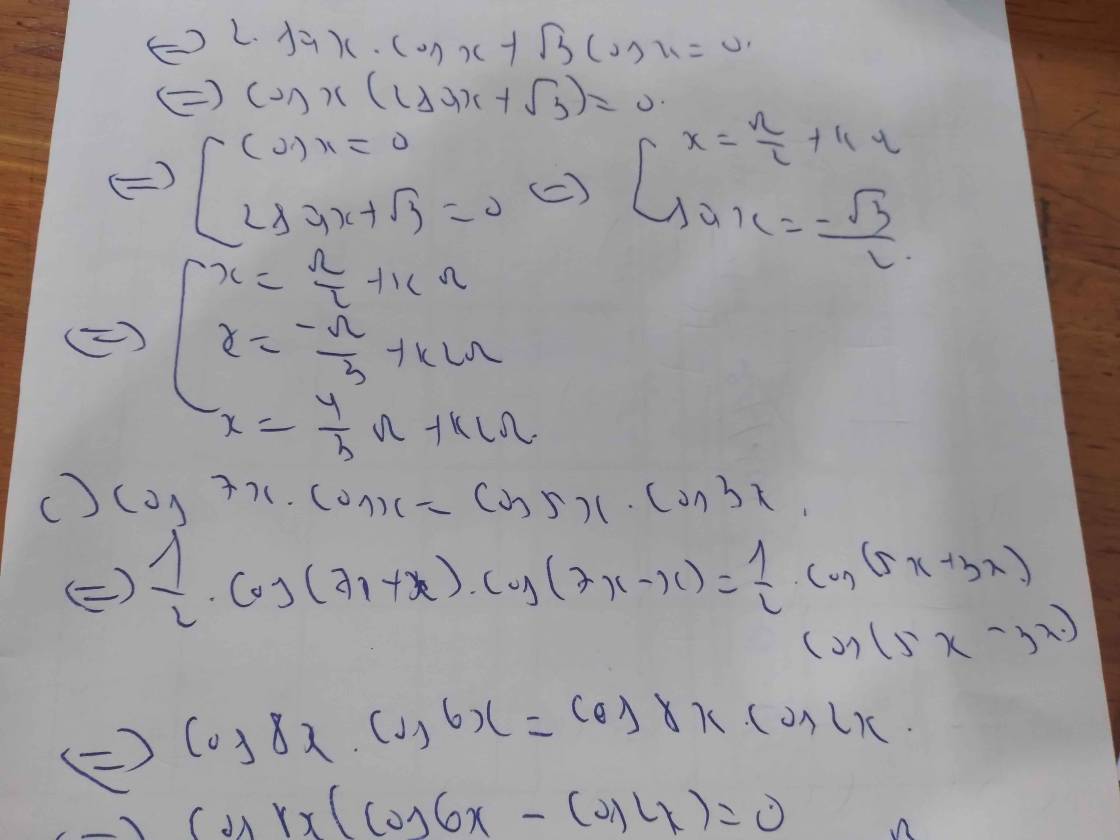 ⇔ 2. sin x . cos x + √3 cos x = 0.
⇔ cos x (2 sin x + √3) = 0.
⇔ [ cos x = 0
2 sin x + √3 = 0 ⇔ [ x = π/2 + kπ
sin x = -√3/2.
⇔ [ x = π/2 + kπ
x = -π/3 + k2π
x = 4/3 π + k2π.
c) cos 7x . cos x = cos 5x . cos 3x.
⇔ 1/2 . cos(7x + x) . cos(7x - x) = 1/2 . cos(5x + 3x)
cos(5x - 3x)
⇔ cos 8x . cos 6x = cos 8x . cos 2x.
⇔ cos 8x (cos 6x - cos 2x) = 0
π